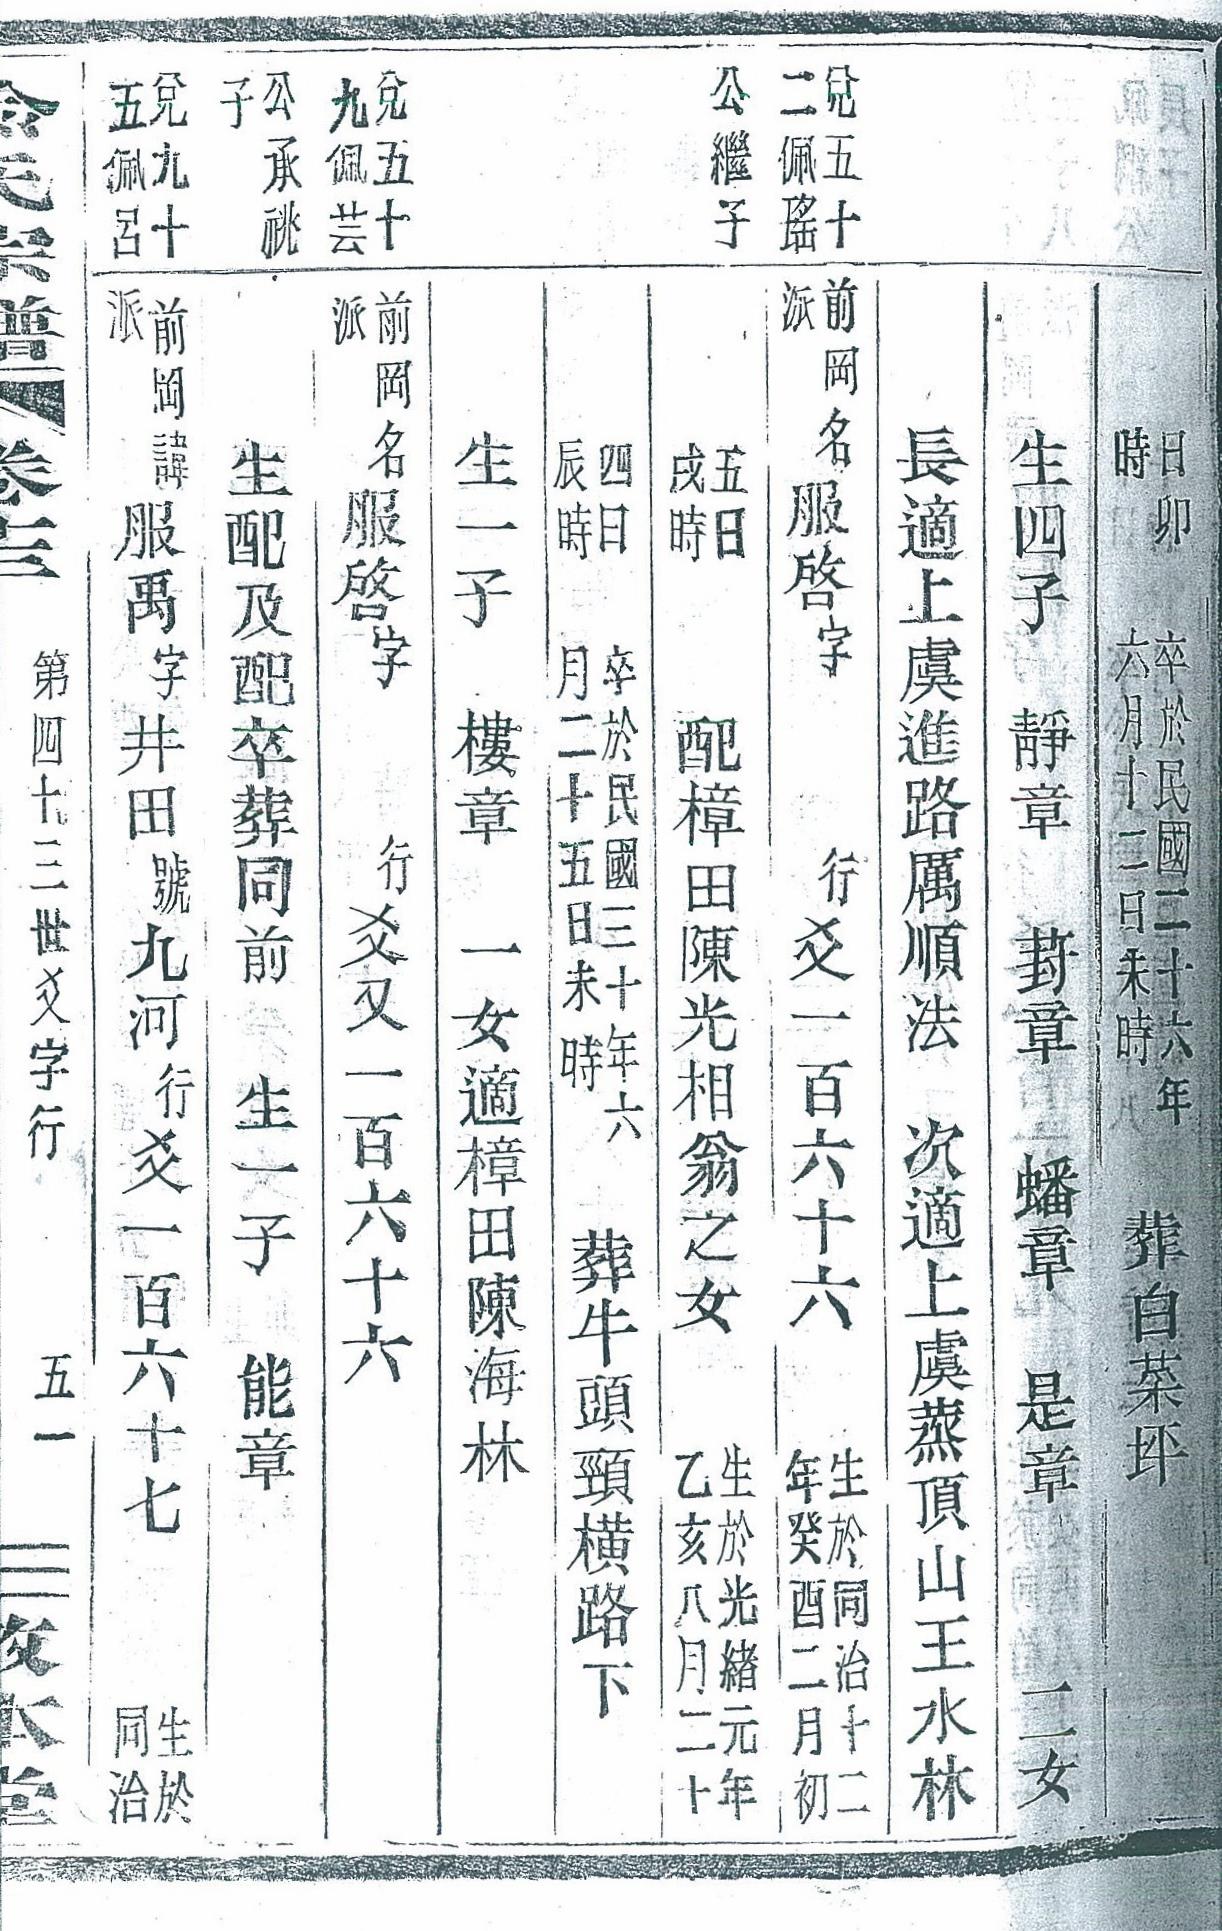 日卯
時
卒於民國二十六年
六月十二日未時
葬白菜坪
生四子 靜章 葑章 蟠章 是章 二女
長適上虞進路厲順法 次適上虞蒸頂山王水林
兌五十
二佩瑤
前岡名服啓字 行爻一百六十六
派
生於同治十二
年癸酉二月初
公繼子
五日
戌時
配樟田陳光相翁之女
生於光緒元年
乙亥八月二十
四日
辰時
卒於民國三十年六
月二十五日未時
葬牛頭頸橫路下
生一子 樓章 一女適樟田陳海林
兌五十
九佩芸
前岡名服啓字 行爻又一百六十六
派
公承祧
子
生配及配卒葬同前 生一子 能章
兌九十
五佩呂
前岡諱服禹字井田號九河行爻一百六十七
派
生於
同治
氏宗譜 卷 第四十三世爻字行 五一 本堂